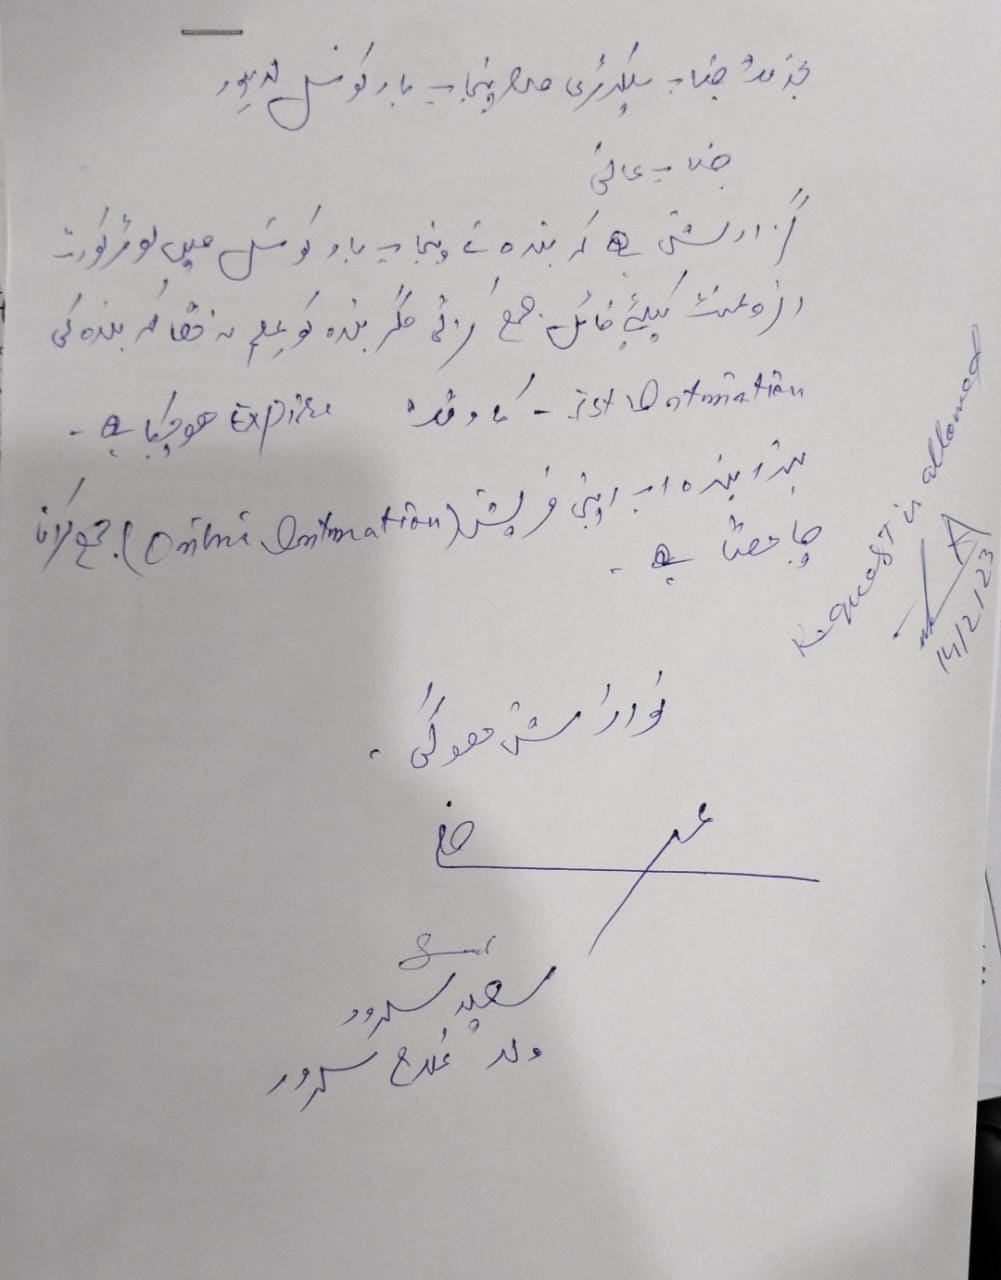 بخدمت جناب سیکرٹری صاحب پنجاب بار کونسل لاہور
جناب عالی
گزارش ہے کہ بندہ نے پنجاب بار کونسل میں لوئر کورٹ
انرولمنٹ کیلئے فائل جمع کرائی مگر بندہ کو علم نہ تھا کہ بندہ کی
1st Intimation - کا وقت Expire ہو چکا ہے -
لہذا بندہ اب اپنی فریش (Online Intimation) جمع کرانا
چاہتا ہے -
نوازش ہوگی -
سرور
ولد غلام سرور
Request is allowed
14/2/23